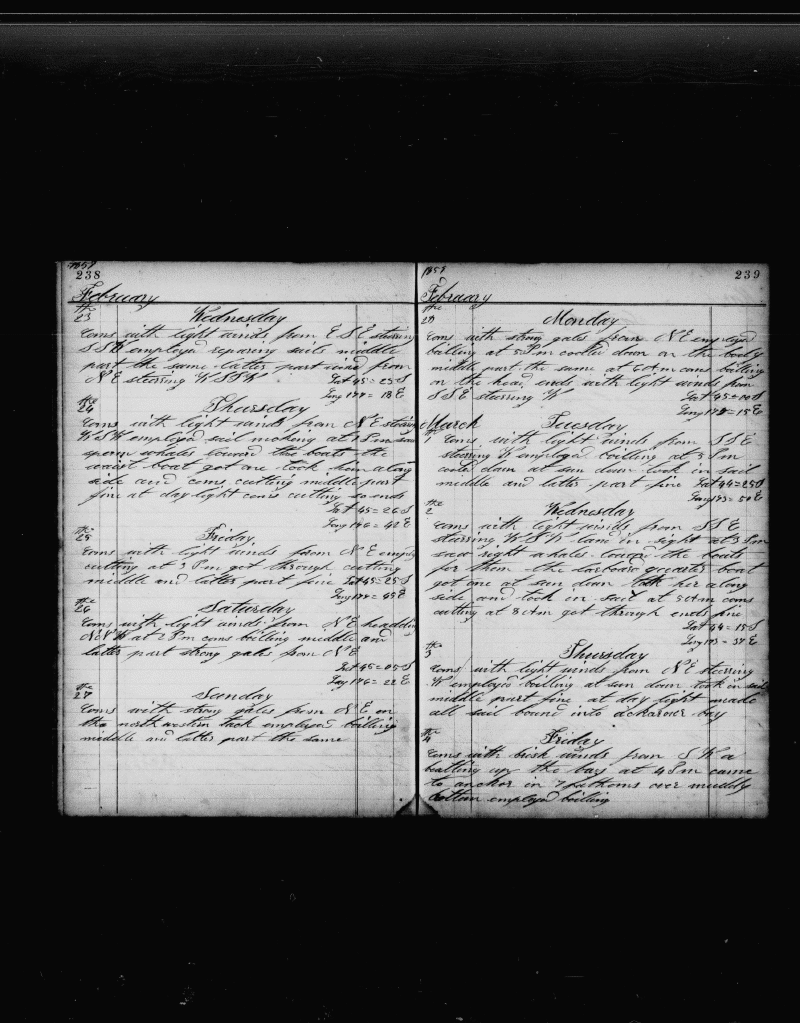 1859
238
February
the
23
Wednesday
Coms with light winds from E S E stearing
S S W employed reparing sails middle
part the same latter part wind from
N E stearing W S W Lat 45 = 25 S
Long 177 = 18 E
the
24
Thursday
Coms with light winds from N E stearing
W S W employed sail making at 1 P m saw
sperm whales lowerd the boats the
waist boat got one took him along
side and coms cutting middle part
fine at day light coms cutting so ends
Lat 45 = 26 S
Long 176 = 42 E
the
25
Friday
Coms with light winds from N E employ
cutting at 3 P m got through cutting
middle and latter part fine Lat 45 = 25 S
Long 177 = 45 E
the
26
Saturday
Coms with light winds from N E headding
N N W at 2 P m coms boiling middle and
latter part strong gales from N E
Lat 45 = 05 S
Long 176 = 22 E
the
27
Sunday
Coms with strong gales from N E on
the north western tack employed boiling
middle and latter part the same
1859
239
February
the
28
Monday
Coms with strong gales from N E employed
boiling at 5 P m cooled down on the body
middle part the same at 6 A m coms boiling
on the head ends with light winds from
S S E stearing W Lat 45 = 00 S
Long 175 = 15 E
March
the
1
Tuesday
Coms with light winds from S S E
stearing W employed boiling at 3 P m
cooled down at sun down took in sail
middle and latter part fine Lat 44 = 25 S
Long 173 = 50 E
the
2
Wednesday
Coms with light winds from S S E
stearing W S W land in sight at 3 P m
saw right whales lowerd the boats
for them the larboard quarter boat
got one at sun down took her along
side and took in sail at 5 A m coms
cutting at 8 A m got through ends fine
Lat 44 = 15 S
Long 173 = 37 E
the
3
Thursday
Coms with light winds from N E stearing
W employed boiling at sun down took in sail
middle part fine at day light made
all sail bound into ackarour bay
the
4
Friday
Coms with brisk winds from S W a
beatting up the bay at 4 P m came
to anchor in 7 fathoms over muddy
bottom employed boiling